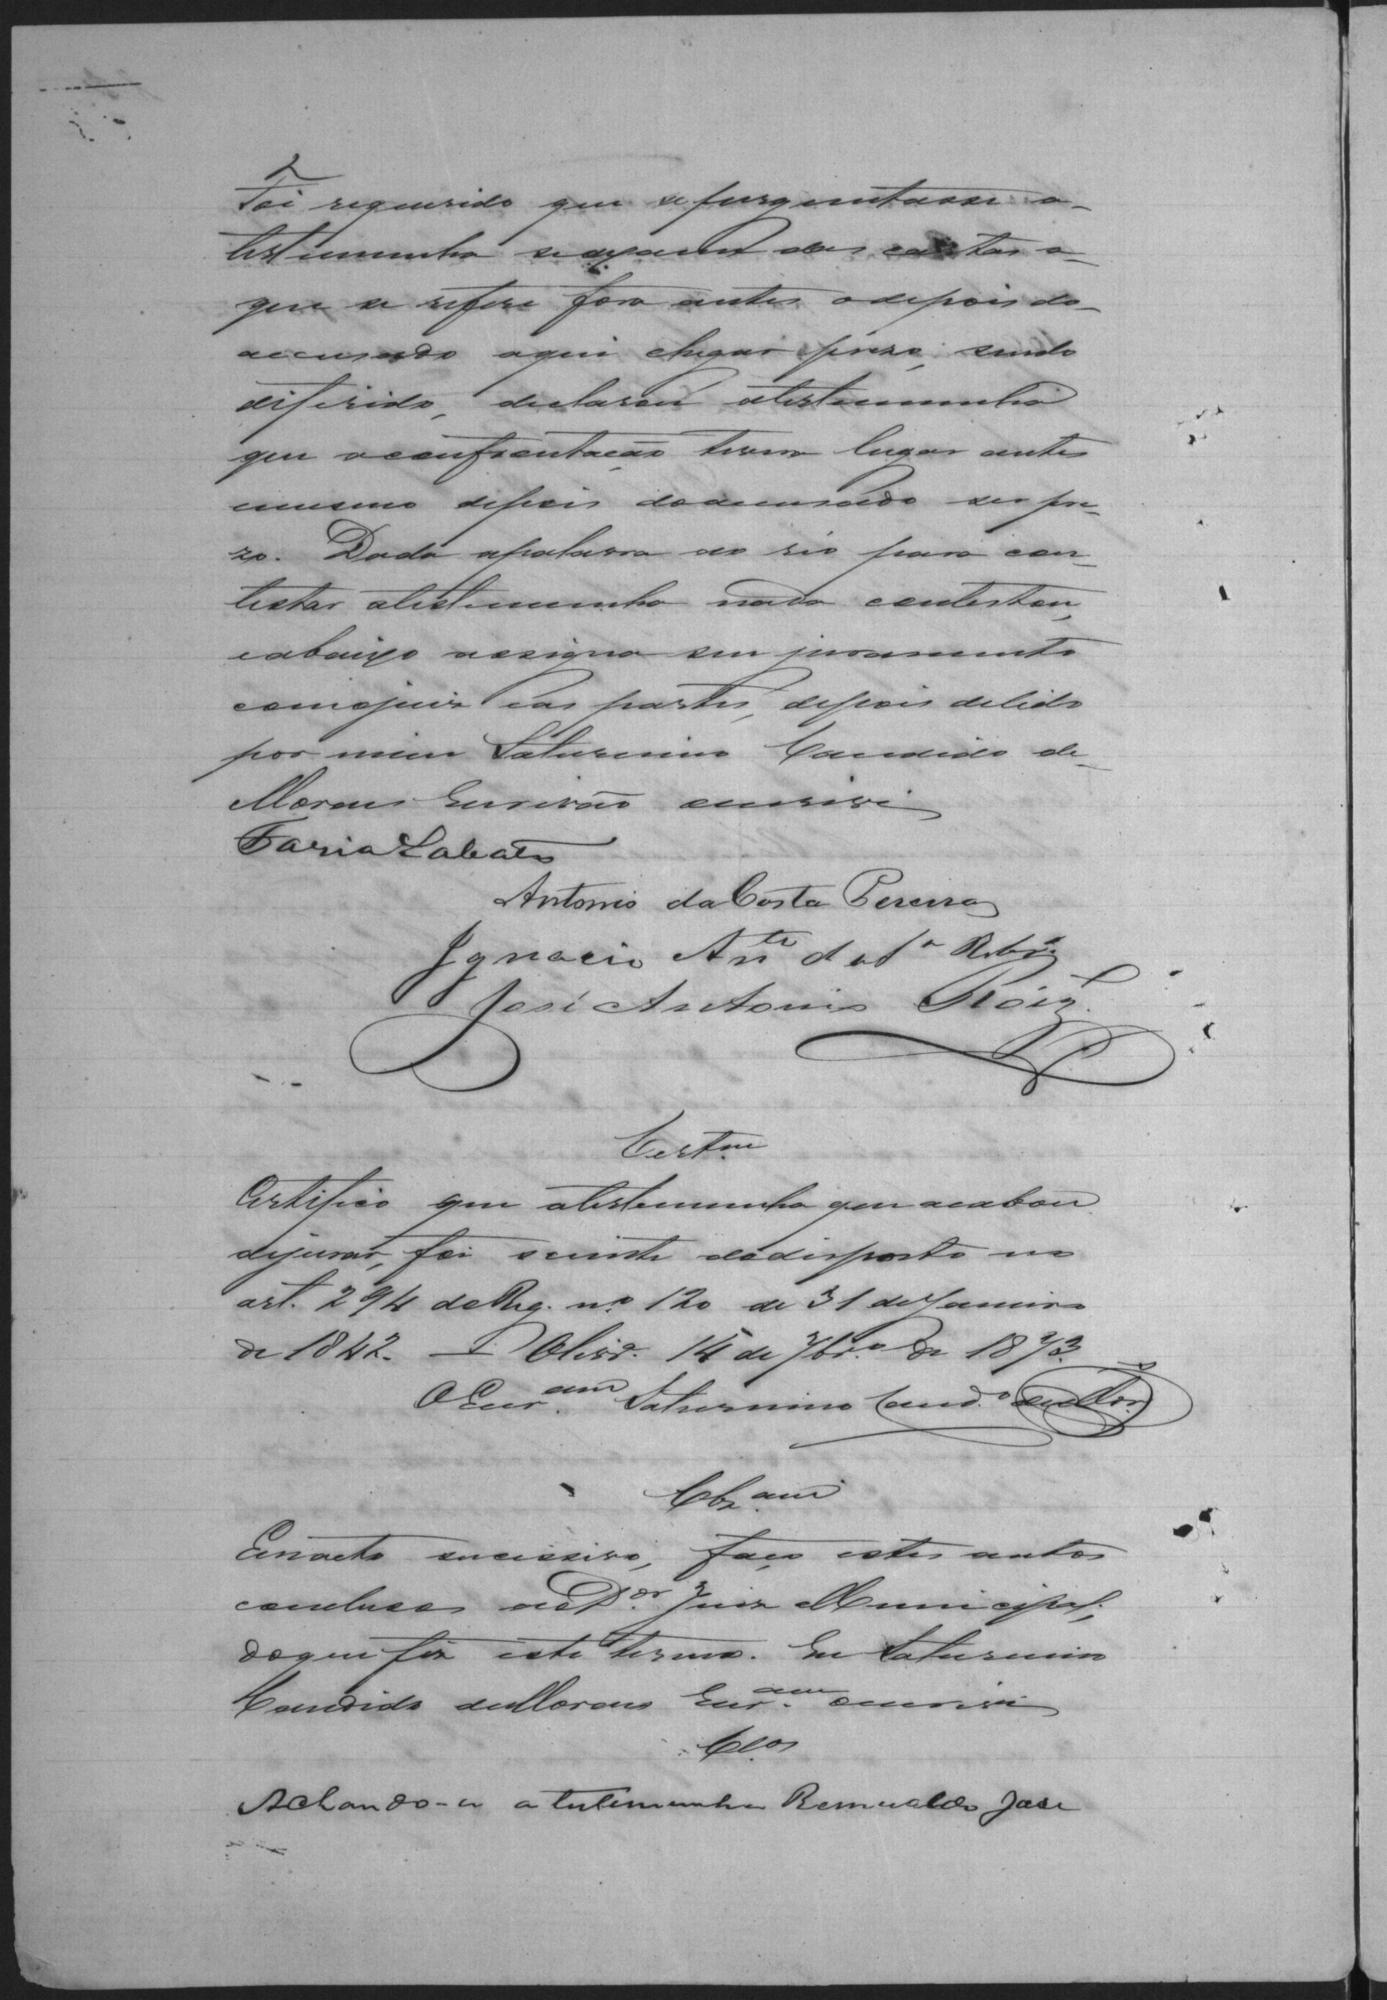 Foi requerido que se perguntasse a-
testemunha se o exame das cartas a-
que se refere fora antes o depois do-
accusado aqui chegar prezo, sendo
diferido, declarou atestemunha
que a confrontação tivera lugar antes
emesmo depois do accusado ser pre-
zo. Dada apalavra ao réo para con-
testar atestemunha nada contestou,
eabaixo assigna seu juramento
comojuiz eas partes, depois delido
por mim Saturnino Candido de-
Moraes Escrivão escrivi
Faria Lobato
Antonio da Costa Pereira
Ignacio Ant.º da S.ª Ribr.º
José Antonio Roiz
Cert.am
Certifico que atestemunha que acabou
dejurar, foi sciente dodisposto no
art. 294 do Reg. n.º 120 de 31 de Janeiro
de 1842. Oliv.ª 15 de 7br.º de 1873.
O Escr.am Saturnino Cand.º de Mor.
Clz.am
Em acto sucessivo, faço estes autos
conclusos ao D.or Juiz Municipal;
do que fiz este termo. Eu Saturnino
Candido de Moraes Escr.am escrivi
Cl.os
Achando-se a testemunha Romualdo José